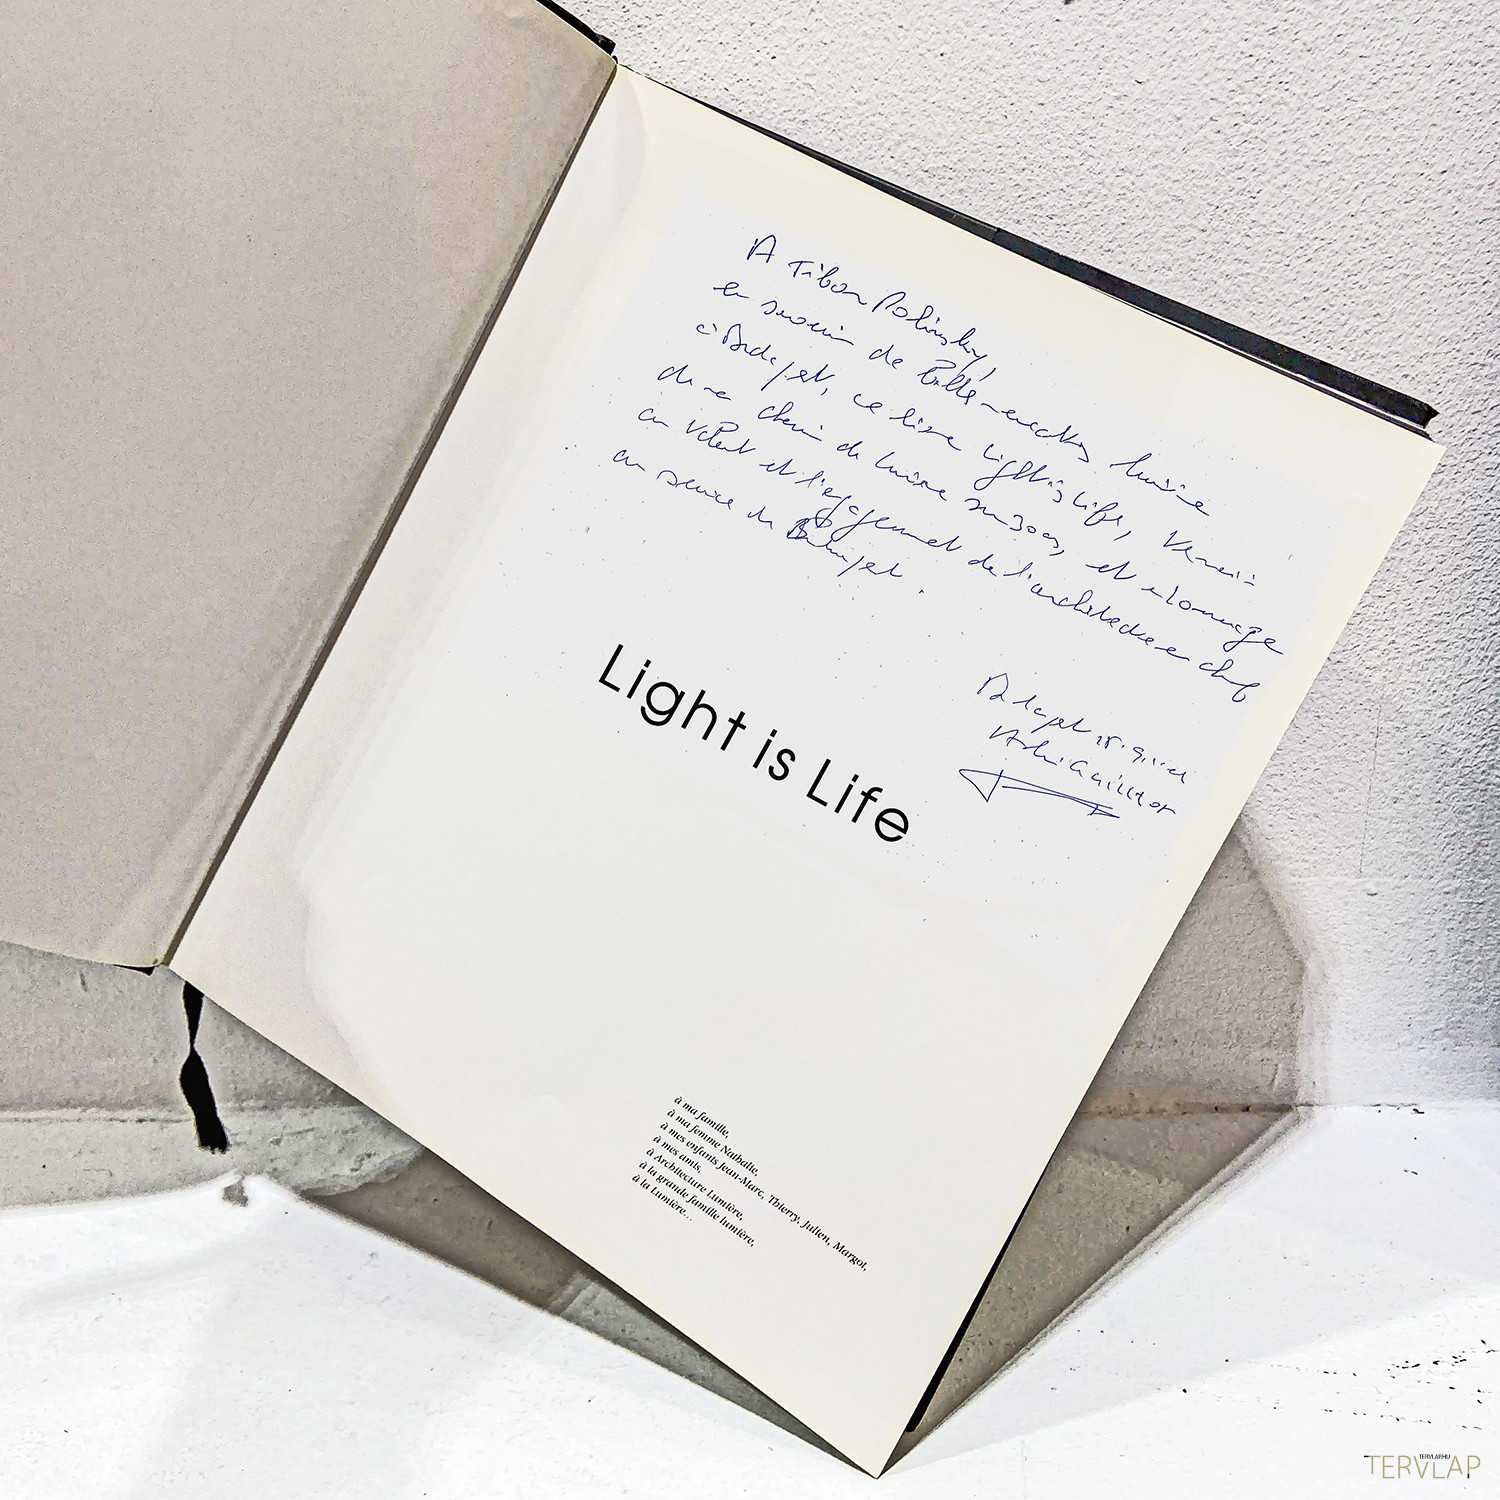 A Tibor Polinszky,
en souvenir de belles rencontres lumière
à Budapest, ce livre Light is Life,
d'un chemin de lumière sur 30 ans, et
au et l'engagement de l'architecte en chef
au service de Budapest.
Budapest
Light is Life
à ma famille,
à ma femme Nathalie,
à mes enfants Jean-Marc, Thierry, Julien, Margot,
à mes amis,
à Architecture Lumière,
à la grande famille lumière,
à la Lumière...
TERVLAP.HU
TERVLAP